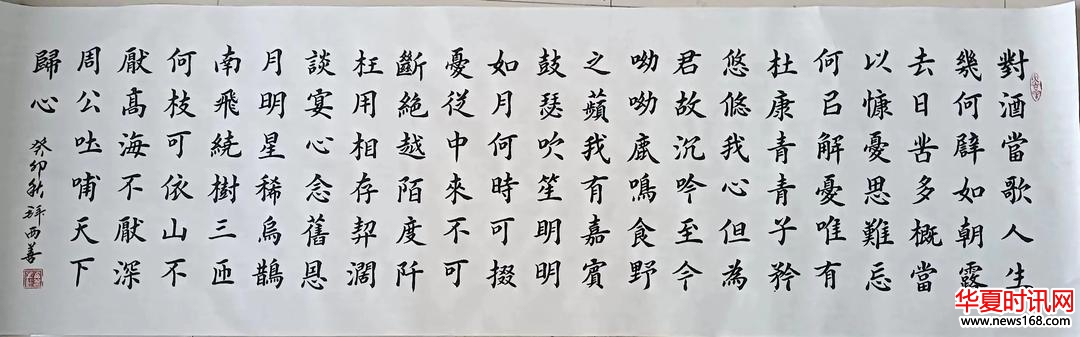 對酒當歌人生
幾何譬如朝露
去日苦多概當
以慷憂思難忘
何㠯解憂唯有
杜康青青子衿
悠悠我心但為
君故沉吟至今
呦呦鹿鳴食野
之蘋我有嘉賓
鼓瑟吹笙明明
如月何時可掇
憂從中來不可
斷絶越陌度阡
枉用相存契濶
談宴心念舊恩
月明星稀烏鵲
南飛繞樹三匝
何枝可依山不
厭髙海不厭深
周公吐哺天下
歸心
癸卯秋 西善
华夏时讯网
www.news168.com